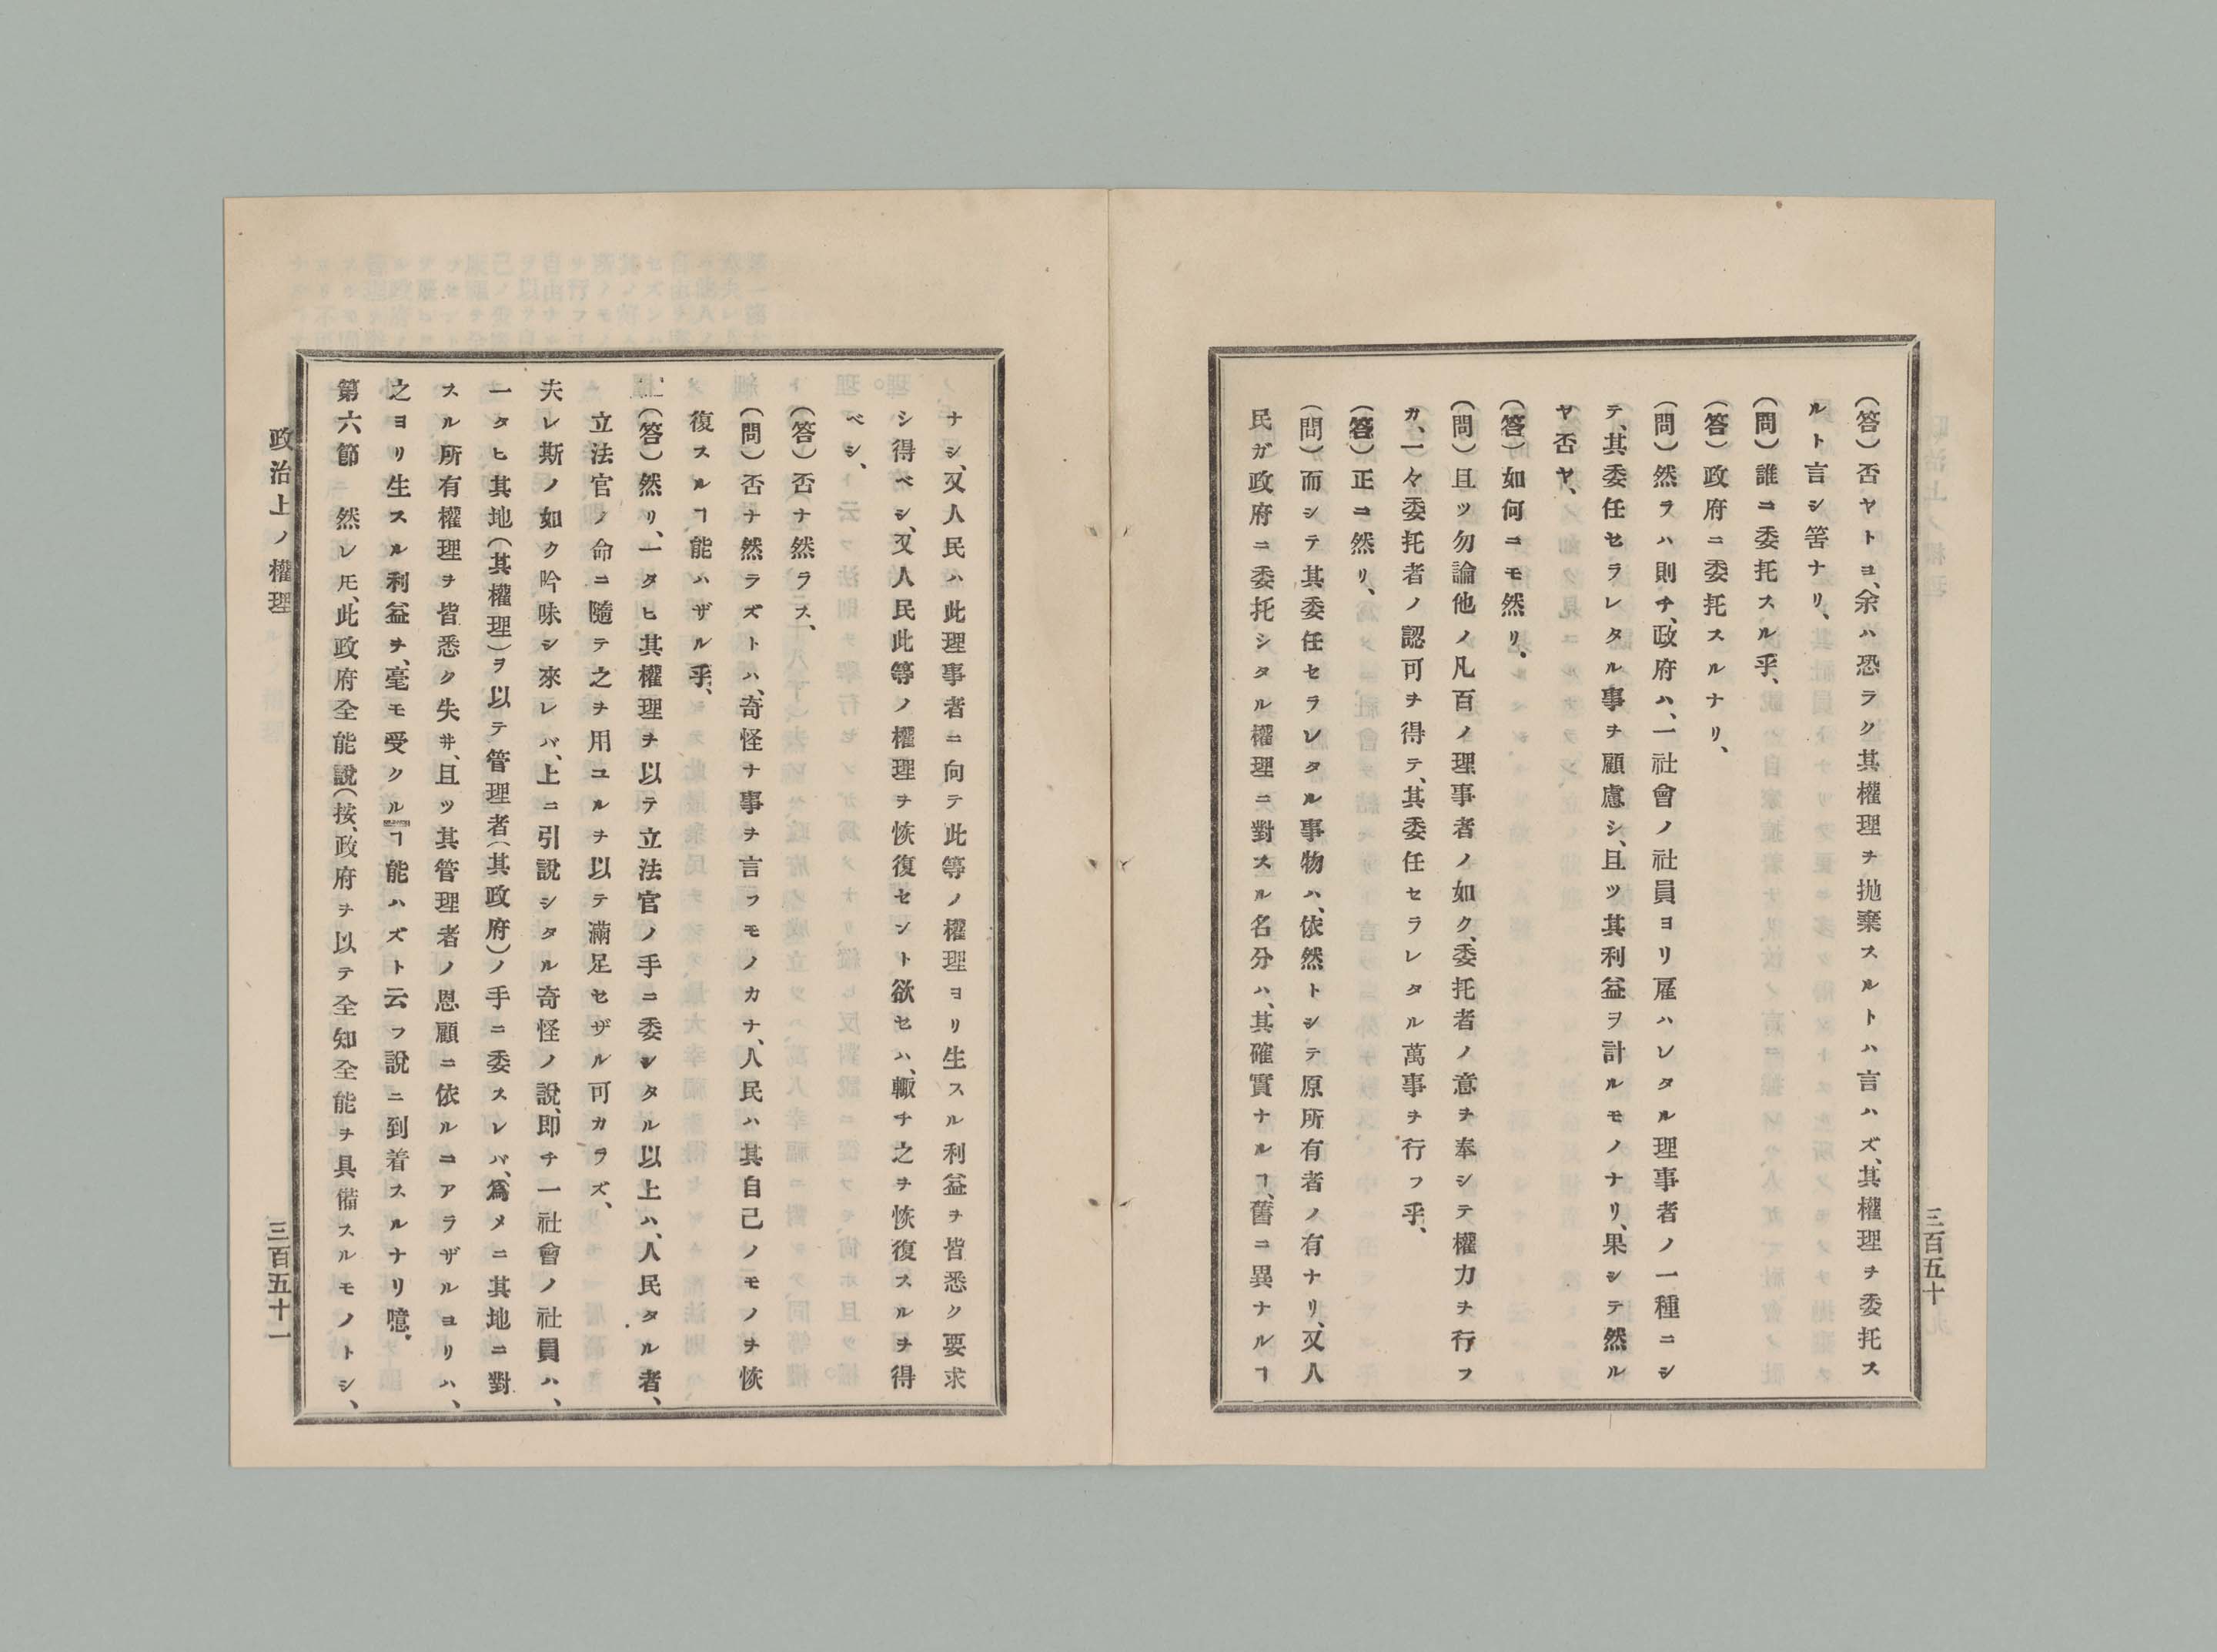 (答)否ヤトヨ、余ハ恐ラク其權理ヲ抛棄スルトハ言ハズ、其權理ヲ委托ス
ルト言シ筈ナリ、
(問)誰ニ委托スル乎、
(答)政府ニ委托スルナリ、
(問)然ラハ則チ、政府ハ、一社會ノ社員ヨリ雇ハレタル理事者ノ一種ニシ
テ、其委任セラレタル事ヲ顧慮シ、且ツ其利益ヲ計ルモノナリ、果シテ然ル
ヤ否ヤ、
(答)如何ニモ然リ、
(問)且ツ勿論他ノ凡百ノ理事者ノ如ク、委托者ノ意ヲ奉シテ權力ヲ行フ
カ、一々委托者ノ認可ヲ得テ、其委任セラレタル萬事ヲ行フ乎、
(答)正ニ然リ、
(問)而シテ其委任セラレタル事物ハ、依然トシテ原所有者ノ有ナリ、又人
民ガ政府ニ委托シタル權理ニ對スル名分ハ、其確實ナルヿ、舊ニ異ナルヿ
三百五十
ナシ、又人民ハ此理事者ニ向テ此等ノ權理ヨリ生スル利益ヲ皆悉ク要求
シ得ベシ、又人民此等ノ權理ヲ恢復セント欲セハ、輙チ之ヲ恢復スルヲ得
ベシ、
(答)否ナ然ラス、
(問)否ナ然ラズトハ、奇怪ナ事ヲ言フモノカナ、人民ハ其自己ノモノヲ恢
復スルヿ能ハザル乎、
(答)然リ、一タヒ其權理ヲ以テ立法官ノ手ニ委シタル以上ハ、人民タル者、
立法官ノ命ニ隨テ之ヲ用ユルヲ以テ滿足セザル可カラズ、
夫レ斯ノ如ク吟味シ來レバ、上ニ引說シタル奇怪ノ說、即チ一社會ノ社員ハ、
一タヒ其地(其權理)ヲ以テ管理者(其政府)ノ手ニ委スレバ、爲メニ其地ニ對
スル所有權理ヲ皆悉ク失ヰ、且ツ其管理者ノ恩顧ニ依ルニアラザルヨリハ、
之ヨリ生スル利益ヲ、毫モ受クルヿ能ハズト云フ說ニ到着スルナリ噫、
第六節 然レ𪜈、此政府全能說(按、政府ヲ以テ全知全能ヲ具備スルモノトシ、
政治上ノ權理
三百五十一